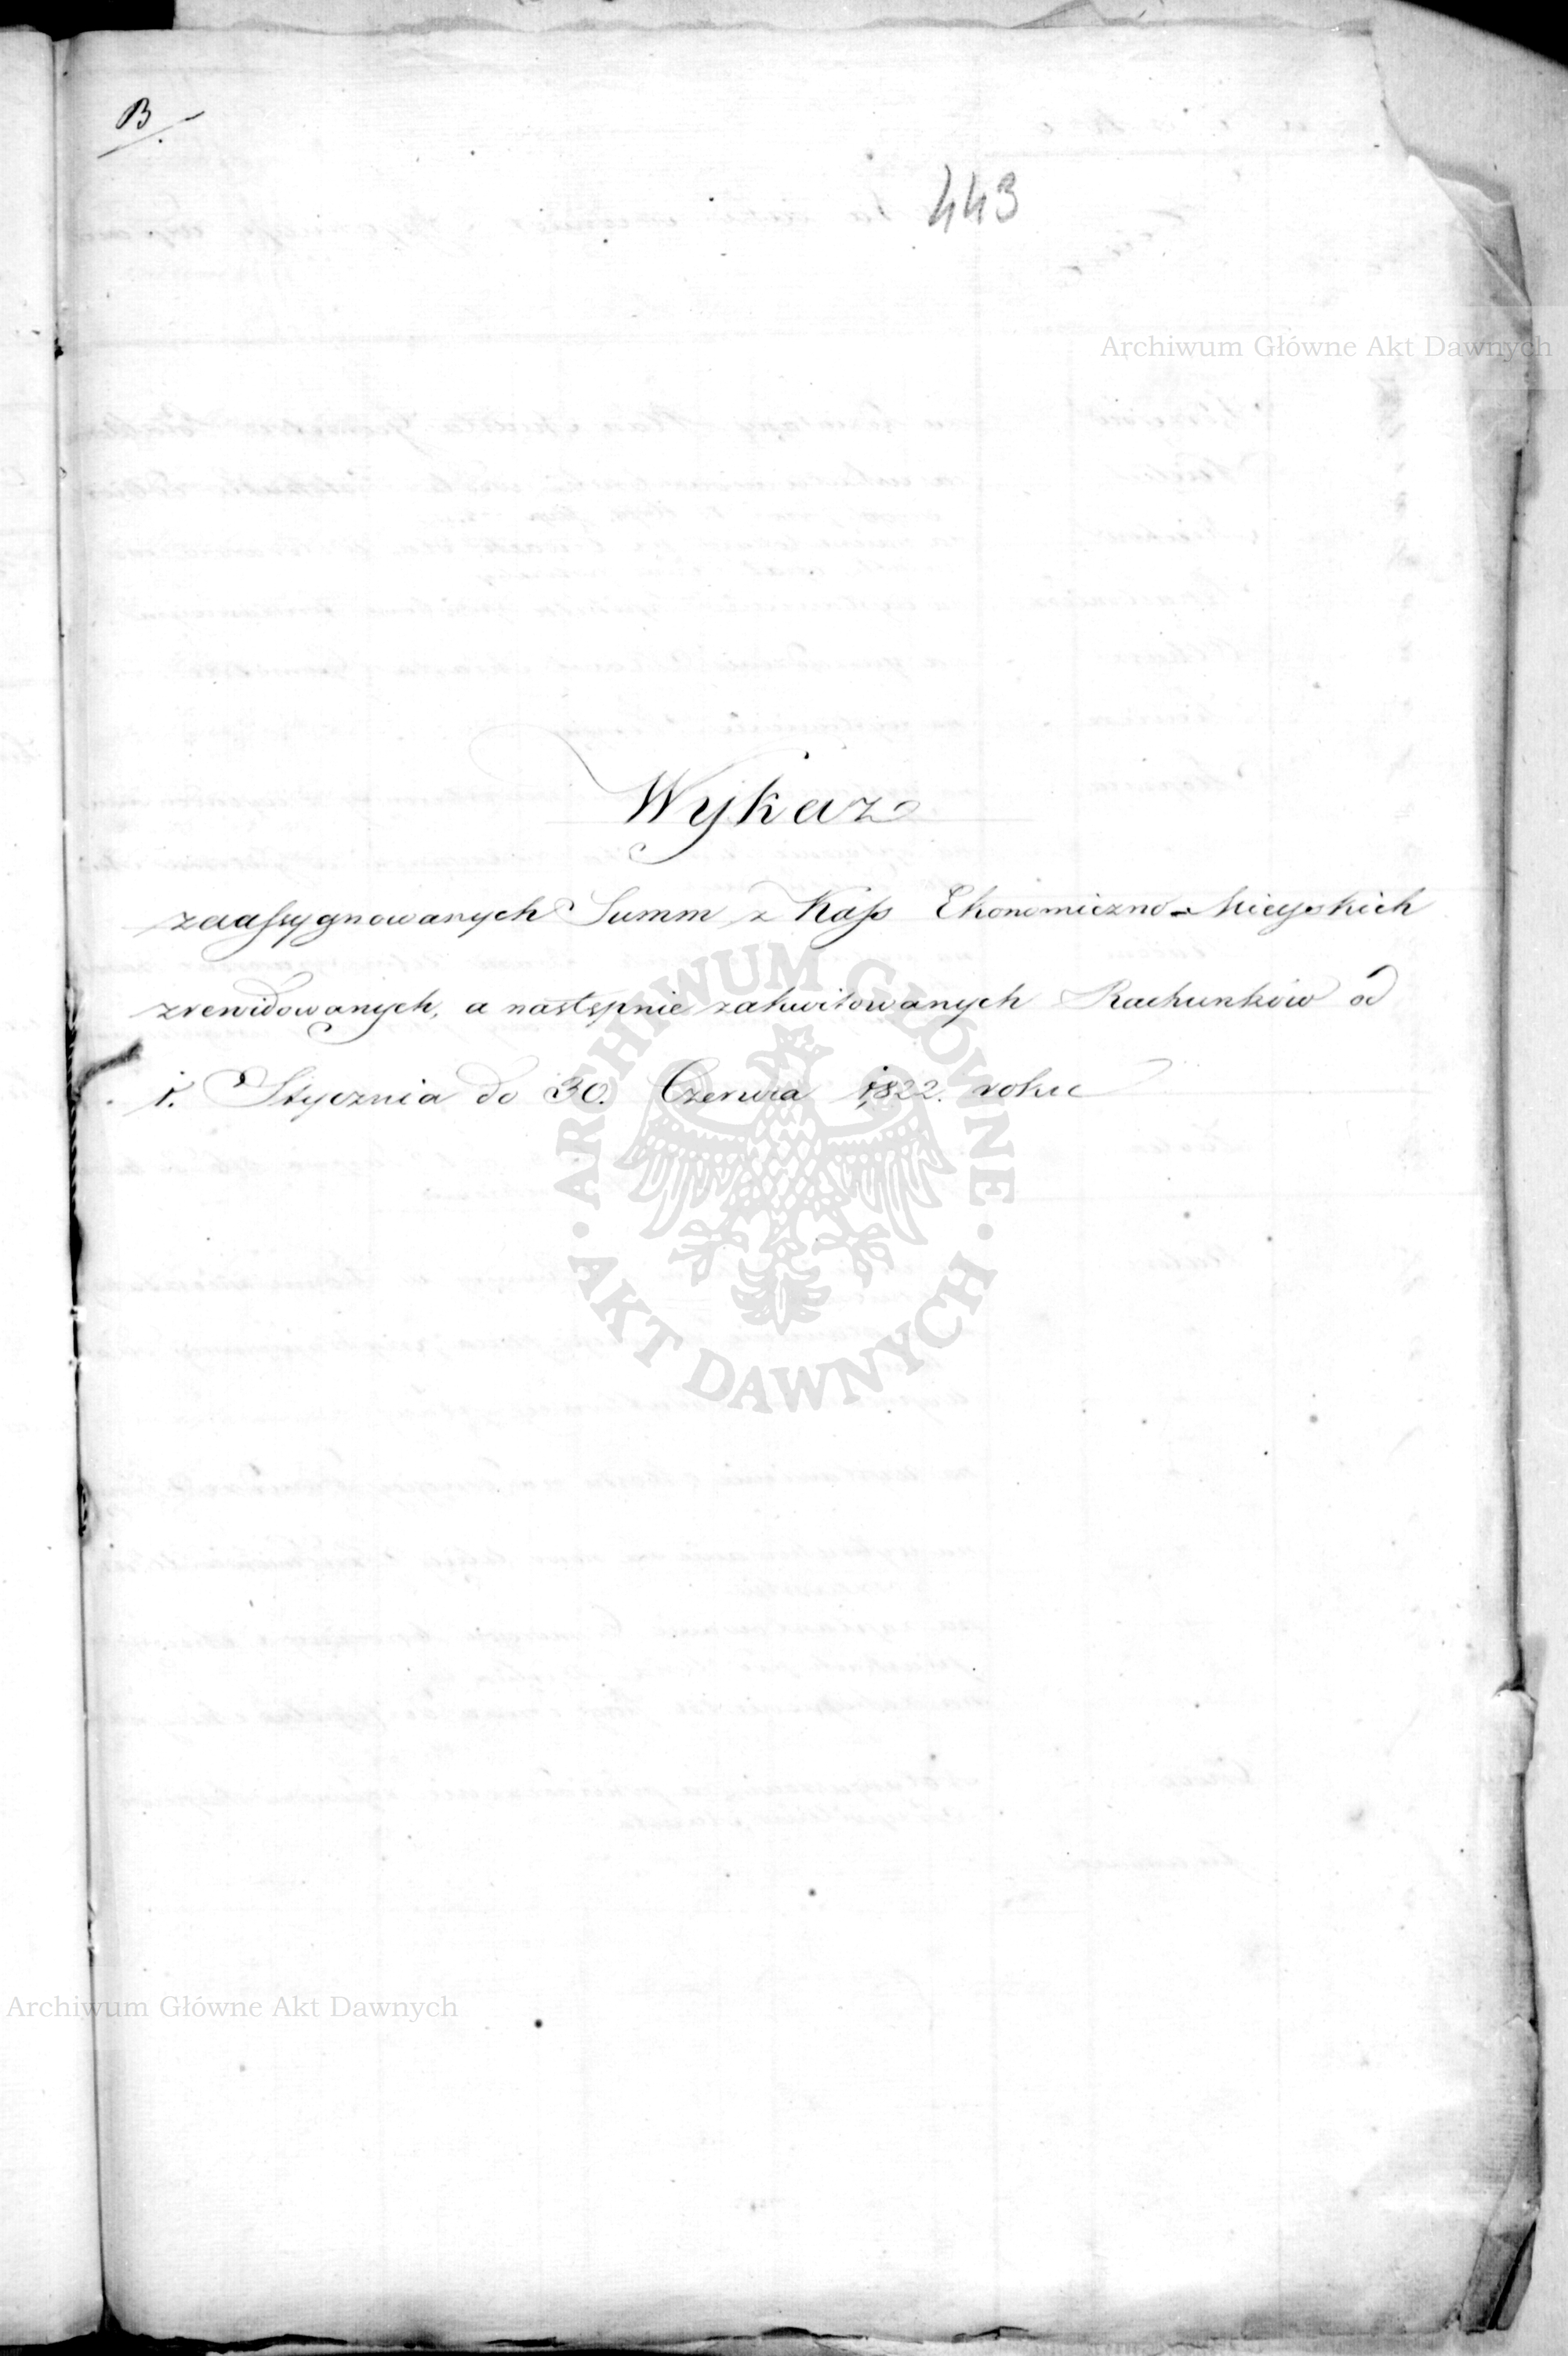 B.
443
Archiwum Główne Akt Dawnych
Wykaz
zaassygnowanych Summ z Kass Ekonomiczno-Mieyskich
zrewidowanych, a następnie zakwitowanych Rachunków od
1. Stycznia do 30. Czerwca 1822. roku
ARCHIWUM GŁÓWNE
AKT DAWNYCH
Archiwum Główne Akt Dawnych